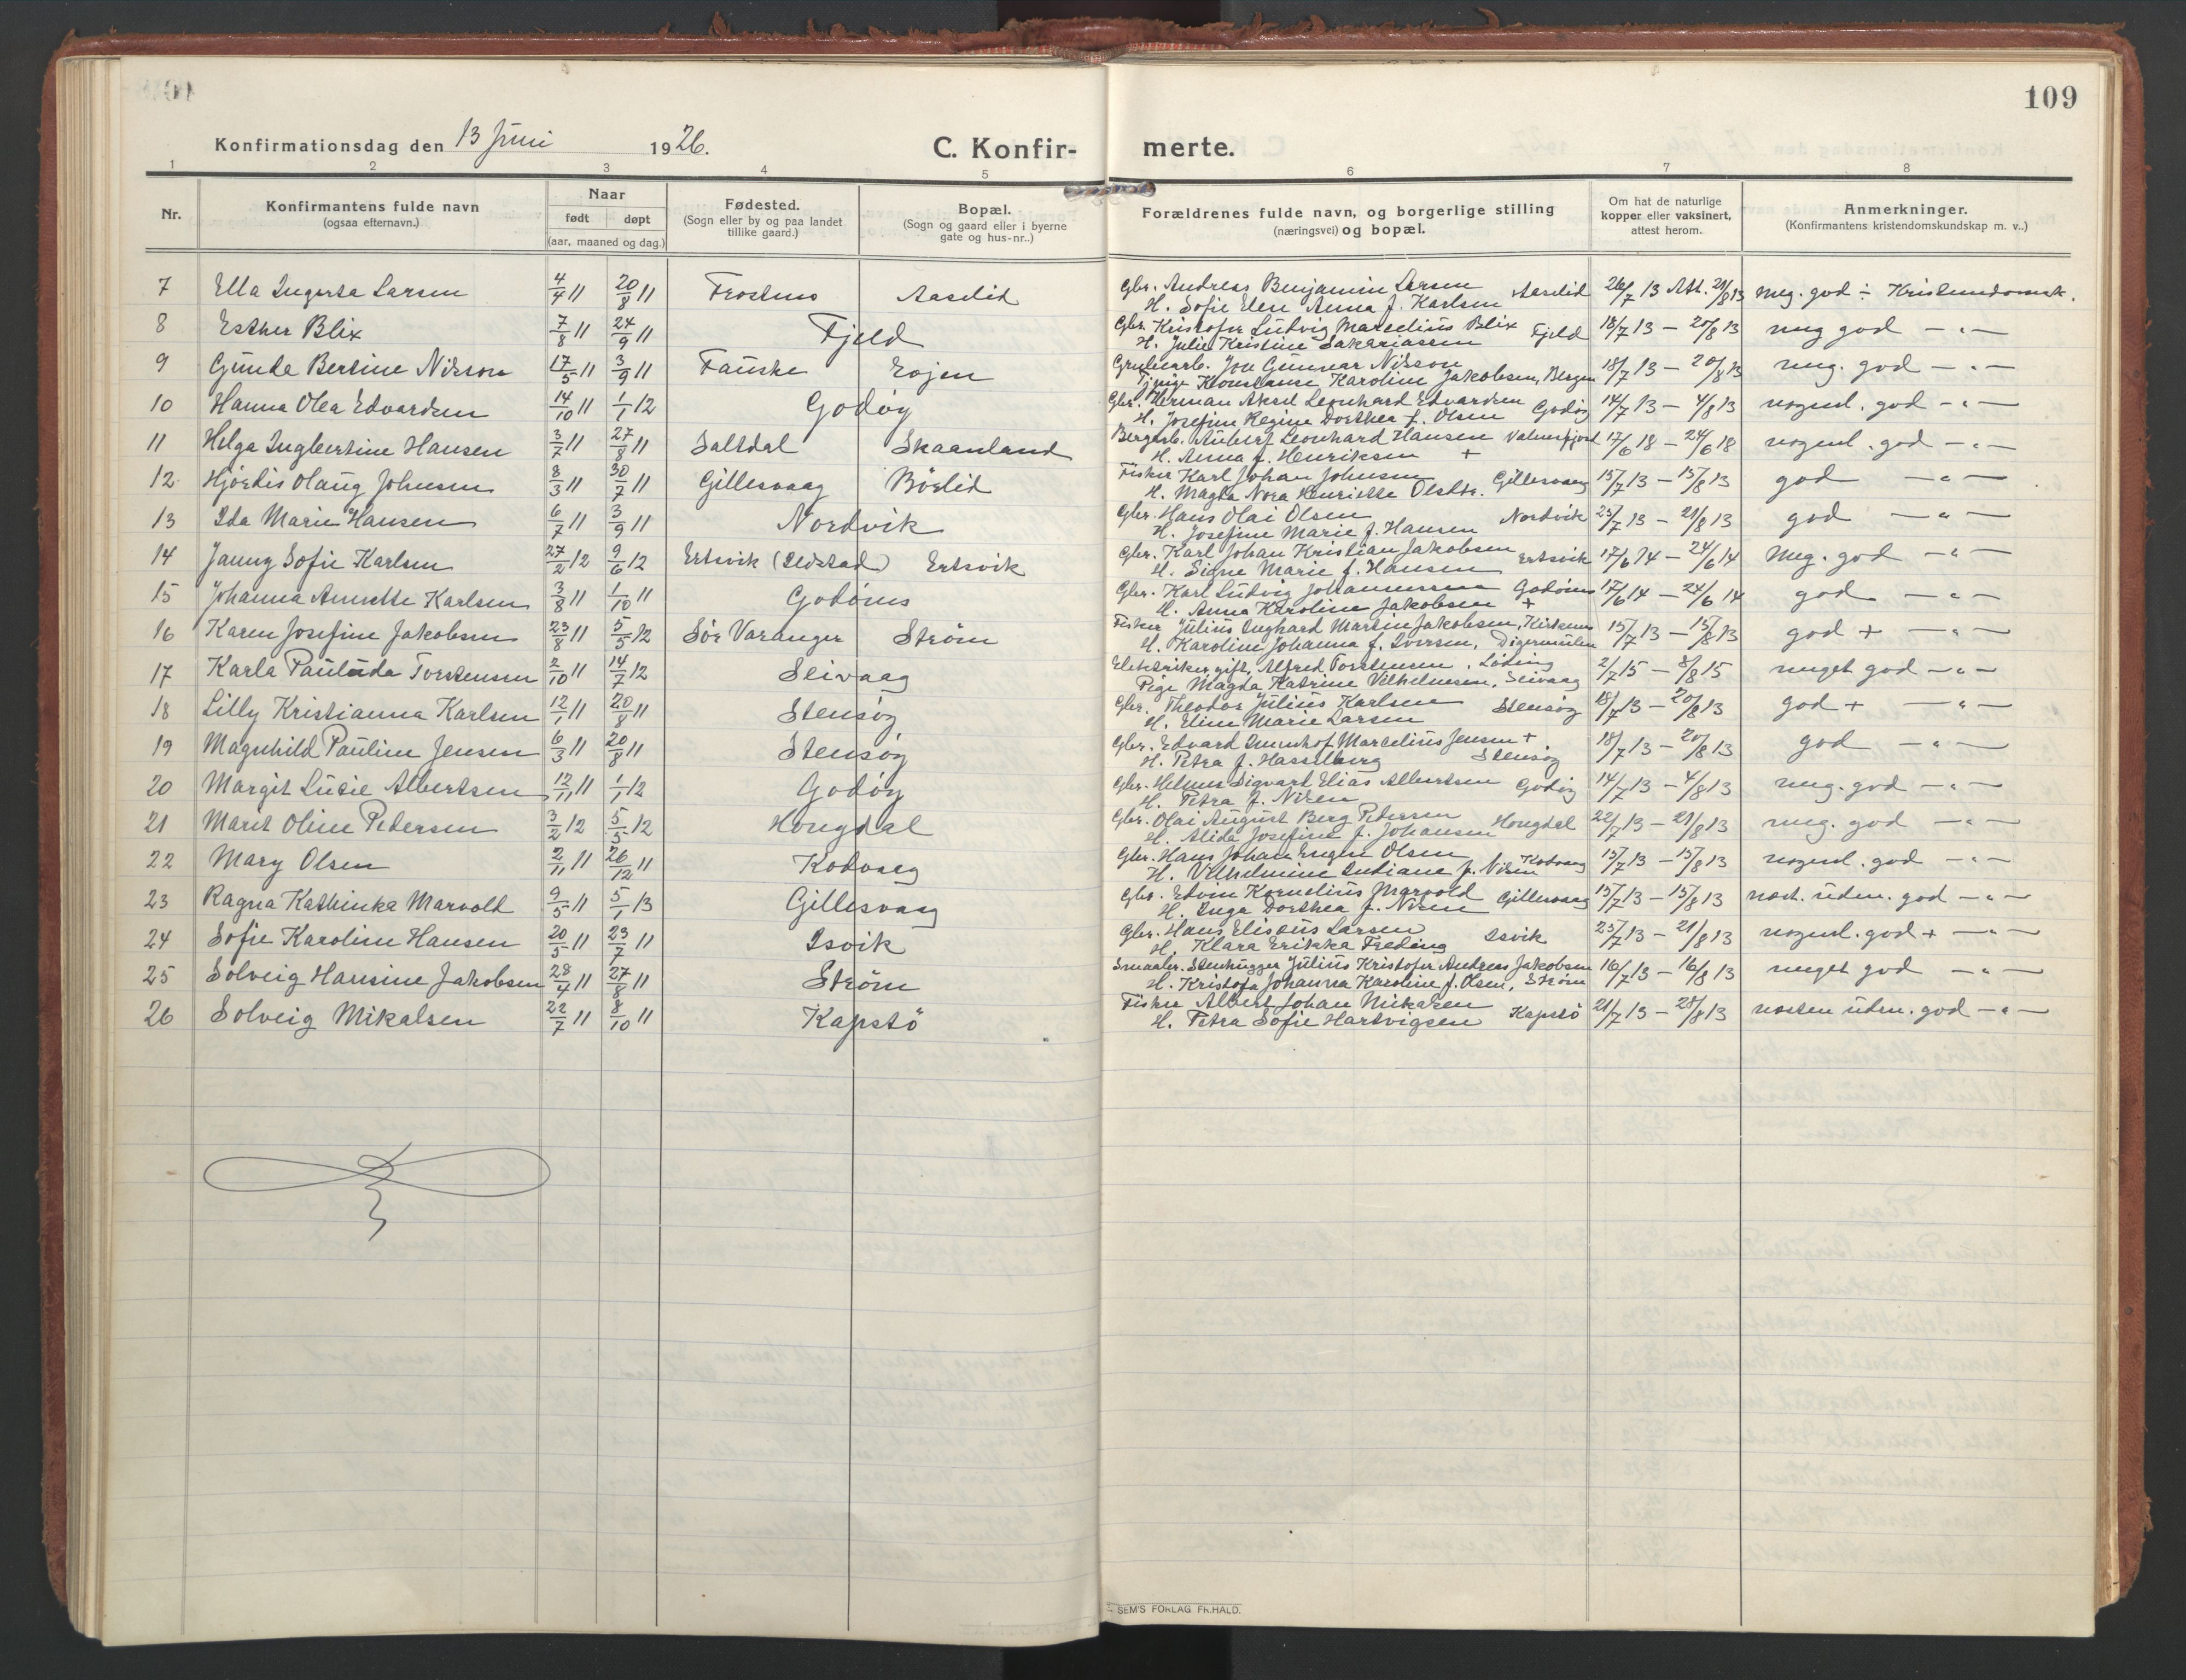 109
Konfirmationsdag den 13 Juni 1926. C. Konfir- merte.
1 2 3 4 5 6 7 8
Nr. Konfirmantens fulde navn (ogsaa efternavn.) Naar født døpt (aar, maaned og dag.) Fødested. (Sogn eller by og paa landet tillike gaard.) Bopæl. (Sogn og gaard eller i byerne gate og hus-nr..) Forældrenes fulde navn, og borgerlige stilling (næringsvei) og bopæl. Om hat de naturlige kopper eller vaksinert, attest herom. Anmerkninger. (Konfirmantens kristendomskundskap m. v..)
7 Ella Ingerta Larsen 4/4 11 20/8 11 Frostmo Aaselid Gbr. Andreas Benjamin Larsen Aaselid 26/7 13 Att. 21/8 13 meg. god ÷ Kristendomsk.
H. Sofie Elen Anna f. Karlsen
8 Esther Blix 7/8 11 24/9 11 Fjeld Gbr. Kristofer Ludvig Marselius Blix Fjeld 18/7 13 — 20/8 13 meg god — " —
H. Julie Kristine Sakariassen
9 Gunda Bertine Nilsson 17/5 11 3/9 11 Fauske Erjen Grubearb. Jon Gunnar Nilsson 18/7 13 — 20/8 13 meg. god — " —
Tj.pige Konstanse Karoline Jakobsen, Bergen
10 Hanna Olea Edvardsen 14/10 11 1/1 12 Godøy Gbr. Herman Aksel Leonhard Edvardsen Godøy 14/7 13 — 4/8 13 nogenl. god — " —
H. Josefine Regine Dorthea f. Olsen
11 Helga Ingbertine Hansen 3/7 11 27/8 11 Saltdal Skaanland Bergarb. Aubert Leonhard Hansen Valnesfjord 17/6 18 — 24/6 18 nogenl. god — " —
H. Anna f. Henriksen +
12 Hjørdis Olaug Johnsen 8/3 11 30/7 11 Gillesvaag Børlid Fisker Karl Johan Johnsen Gillesvaag 15/7 13 — 15/8 13 god — " —
H. Magda Nora Henriette Olsdtr.
13 Ida Marie Hansen 6/7 11 3/9 11 Nordvik Gbr. Hans Olai Olsen Nordvik 23/7 13 — 21/8 13 god — " —
H. Josefine Marie f. Hansen
14 Janny Sofie Karlsen 27/2 12 9/6 12 Ertsvik (Seistad) Ertsvik Gbr. Karl Johan Kristian Jakobsen Ertsvik 17/6 14 — 24/6 14 Meg. god — " —
H. Signe Marie f. Hansen
15 Johanna Annette Karlsen 3/8 11 1/10 11 Godønes Gbr. Karl Ludvig Johannessen Godønes 17/6 14 — 24/6 14 god — " —
H. Anna Karoline Jakobsen +
16 Karen Josefine Jakobsen 23/8 11 5/5 12 Sør Varanger Strøm Fisker Julius Inghard Martin Jakobsen, Kirkenes 15/7 13 — 15/8 13 god + — " —
H. Karoline Johanna f. Iversen, Digermulen
17 Karla Paulida Torstensen 2/10 11 14/7 12 Seivaag Elektriker gift, Alfred Torstensen, Løding 2/7 15 — 8/8 15 meget god — " —
Pige Magda Katrine Vilhelmsen, Seivaag
18 Lilly Kristianna Karlsen 12/1 11 20/8 11 Stensøy Gbr. Theodor Julius Karlsen Stensøy 18/7 13 — 20/8 13 god + — " —
H. Eline Marie Larsen
19 Magnhild Pauline Jensen 6/3 11 20/8 11 Stensøy Gbr. Edvard Marselius Jensen + 18/7 13 — 20/8 13 god — " —
H. Petra f. Hasselberg Stensøy
20 Margit Lusie Albertsen 12/11 11 1/1 12 Godøy Gbr. Helmer Sigvart Elias Albertsen Godøy 14/7 13 — 4/8 13 meg. god — " —
H. Petra f. Nilsen
21 Marit Oline Pedersen 3/2 12 5/5 12 Hongdal Gbr. Olai August Berg Pedersen Hongdal 22/7 13 — 21/8 13 meg. god — " —
H. Alida Josefine f. Johansen
22 Mary Olsen 2/11 11 26/12 11 Kodvaag Gbr. Hans Johan Engen Olsen Kodvaag 15/7 13 — 15/8 13 nogenl. god — " —
H. Vilhelmine Indiane f. Nilsen
23 Ragna Kathinka Marvold 9/5 11 5/1 13 Gillesvaag Gbr. Edvin Kornelius Marvold Gillesvaag 15/7 13 — 15/8 13 næst. udm. god — " —
H. Inga Dorthea f. Nilsen
24 Sofie Karoline Hansen 20/5 11 23/7 11 Isvik Gbr. Hans Elisæus Larsen Isvik 25/7 13 — 21/8 13 nogenl. god + — " —
H. Klara Erikka Freding
25 Solveig Hansine Jakobsen 28/4 11 27/8 11 Strøm Smaabr. Stenhugger Julius Kristofer Andreas Jakobsen 16/7 13 — 16/8 13 meget god — " —
H. Kristofa Johanna Karoline f. Olsen, Strøm
26 Solveig Mikalsen 22/7 11 8/10 11 Kapstø Fisker Albert Johan Mikalsen Kapstø 21/7 13 — 28/8 13 næsten udm. god — " —
H. Petra Sofie Hartvigsen
SEM'S FORLAG FR.HALD.